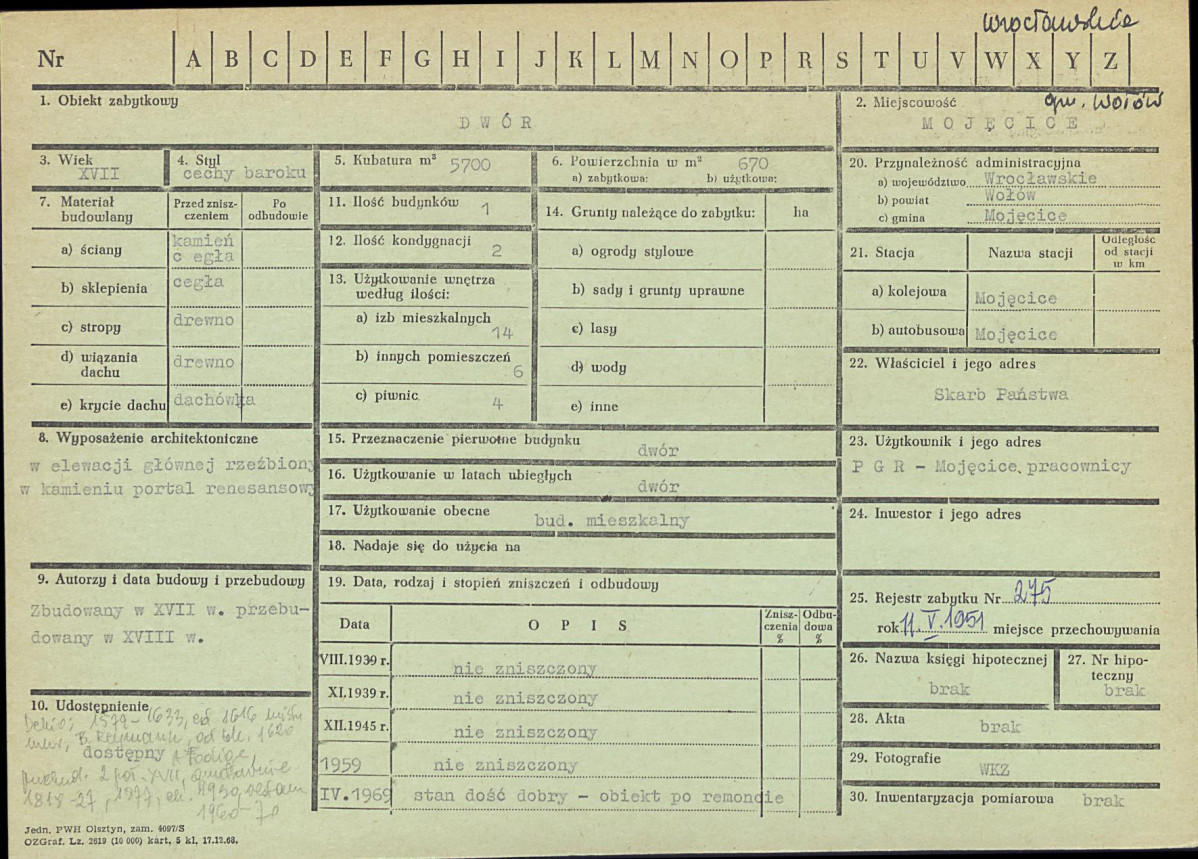 wrocławskie
Nr A B C D E F G H I J K L M N O P R S T U V W X Y Z
1. Obiekt zabytkowy
DWÓR
2. Miejscowość gm. Wołów
MOJĘCICE
3. Wiek
XVII
4. Styl
cechy baroku
5. Kubatura m³ 5700
6. Powierzchnia w m² 670
a) zabytkowa: b) użytkowa:
7. Materiał budowlany
Przed zniszczeniem
Po odbudowie
a) ściany kamień
c egła
b) sklepienia cegła
c) stropy drewno
d) wiązania dachu drewno
e) krycie dachu dachówka
8. Wyposażenie architektoniczne
w elewacji głównej rzeźbiony
w kamieniu portal renesansowy
9. Autorzy i data budowy i przebudowy
Zbudowany w XVII w. przebu-
dowany w XVIII w.
10. Udostępnienie
Dehio: 1579-1633, od 1616
B. Reymann, od ok. 1620
dostępny
2 poł. XVII,
1818-27, 1977, ok. 1930,
1960-70
11. Ilość budynków 1
12. Ilość kondygnacji 2
13. Użytkowanie wnętrza
według ilości:
a) izb mieszkalnych 14
b) innych pomieszczeń 6
c) piwnic 4
14. Grunty należące do zabytku: ha
a) ogrody stylowe
b) sady i grunty uprawne
c) lasy
d) wody
e) inne
15. Przeznaczenie pierwotne budynku
dwór
16. Użytkowanie w latach ubiegłych
dwór
17. Użytkowanie obecne
bud. mieszkalny
18. Nadaje się do użycia na
19. Data, rodzaj i stopień zniszczeń i odbudowy
Data OPIS Zniszczenia % Odbudowa %
VIII.1939 r. nie zniszczony
XI.1939 r. nie zniszczony
XII.1945 r. nie zniszczony
1959 nie zniszczony
IV.1969 stan dość dobry - obiekt po remoncie
20. Przynależność administracyjna
a) województwo Wrocławskie
b) powiat Wołów
c) gmina Mojęcice
21. Stacja Nazwa stacji Odległość od stacji w km
a) kolejowa Mojęcice
b) autobusowa Mojęcice
22. Właściciel i jego adres
Skarb Państwa
23. Użytkownik i jego adres
P G R - Mojęcice, pracownicy
24. Inwestor i jego adres
25. Rejestr zabytku Nr 275
rok 11.V.1951 miejsce przechowywania
26. Nazwa księgi hipotecznej
brak
27. Nr hipoteczny
brak
28. Akta
brak
29. Fotografie
WKZ
30. Inwentaryzacja pomiarowa brak
Jedn. PWH Olsztyn, zam. 4097/S
OZGraf. Lz. 2619 (10 000) kart, 5 kl, 17.12.68.